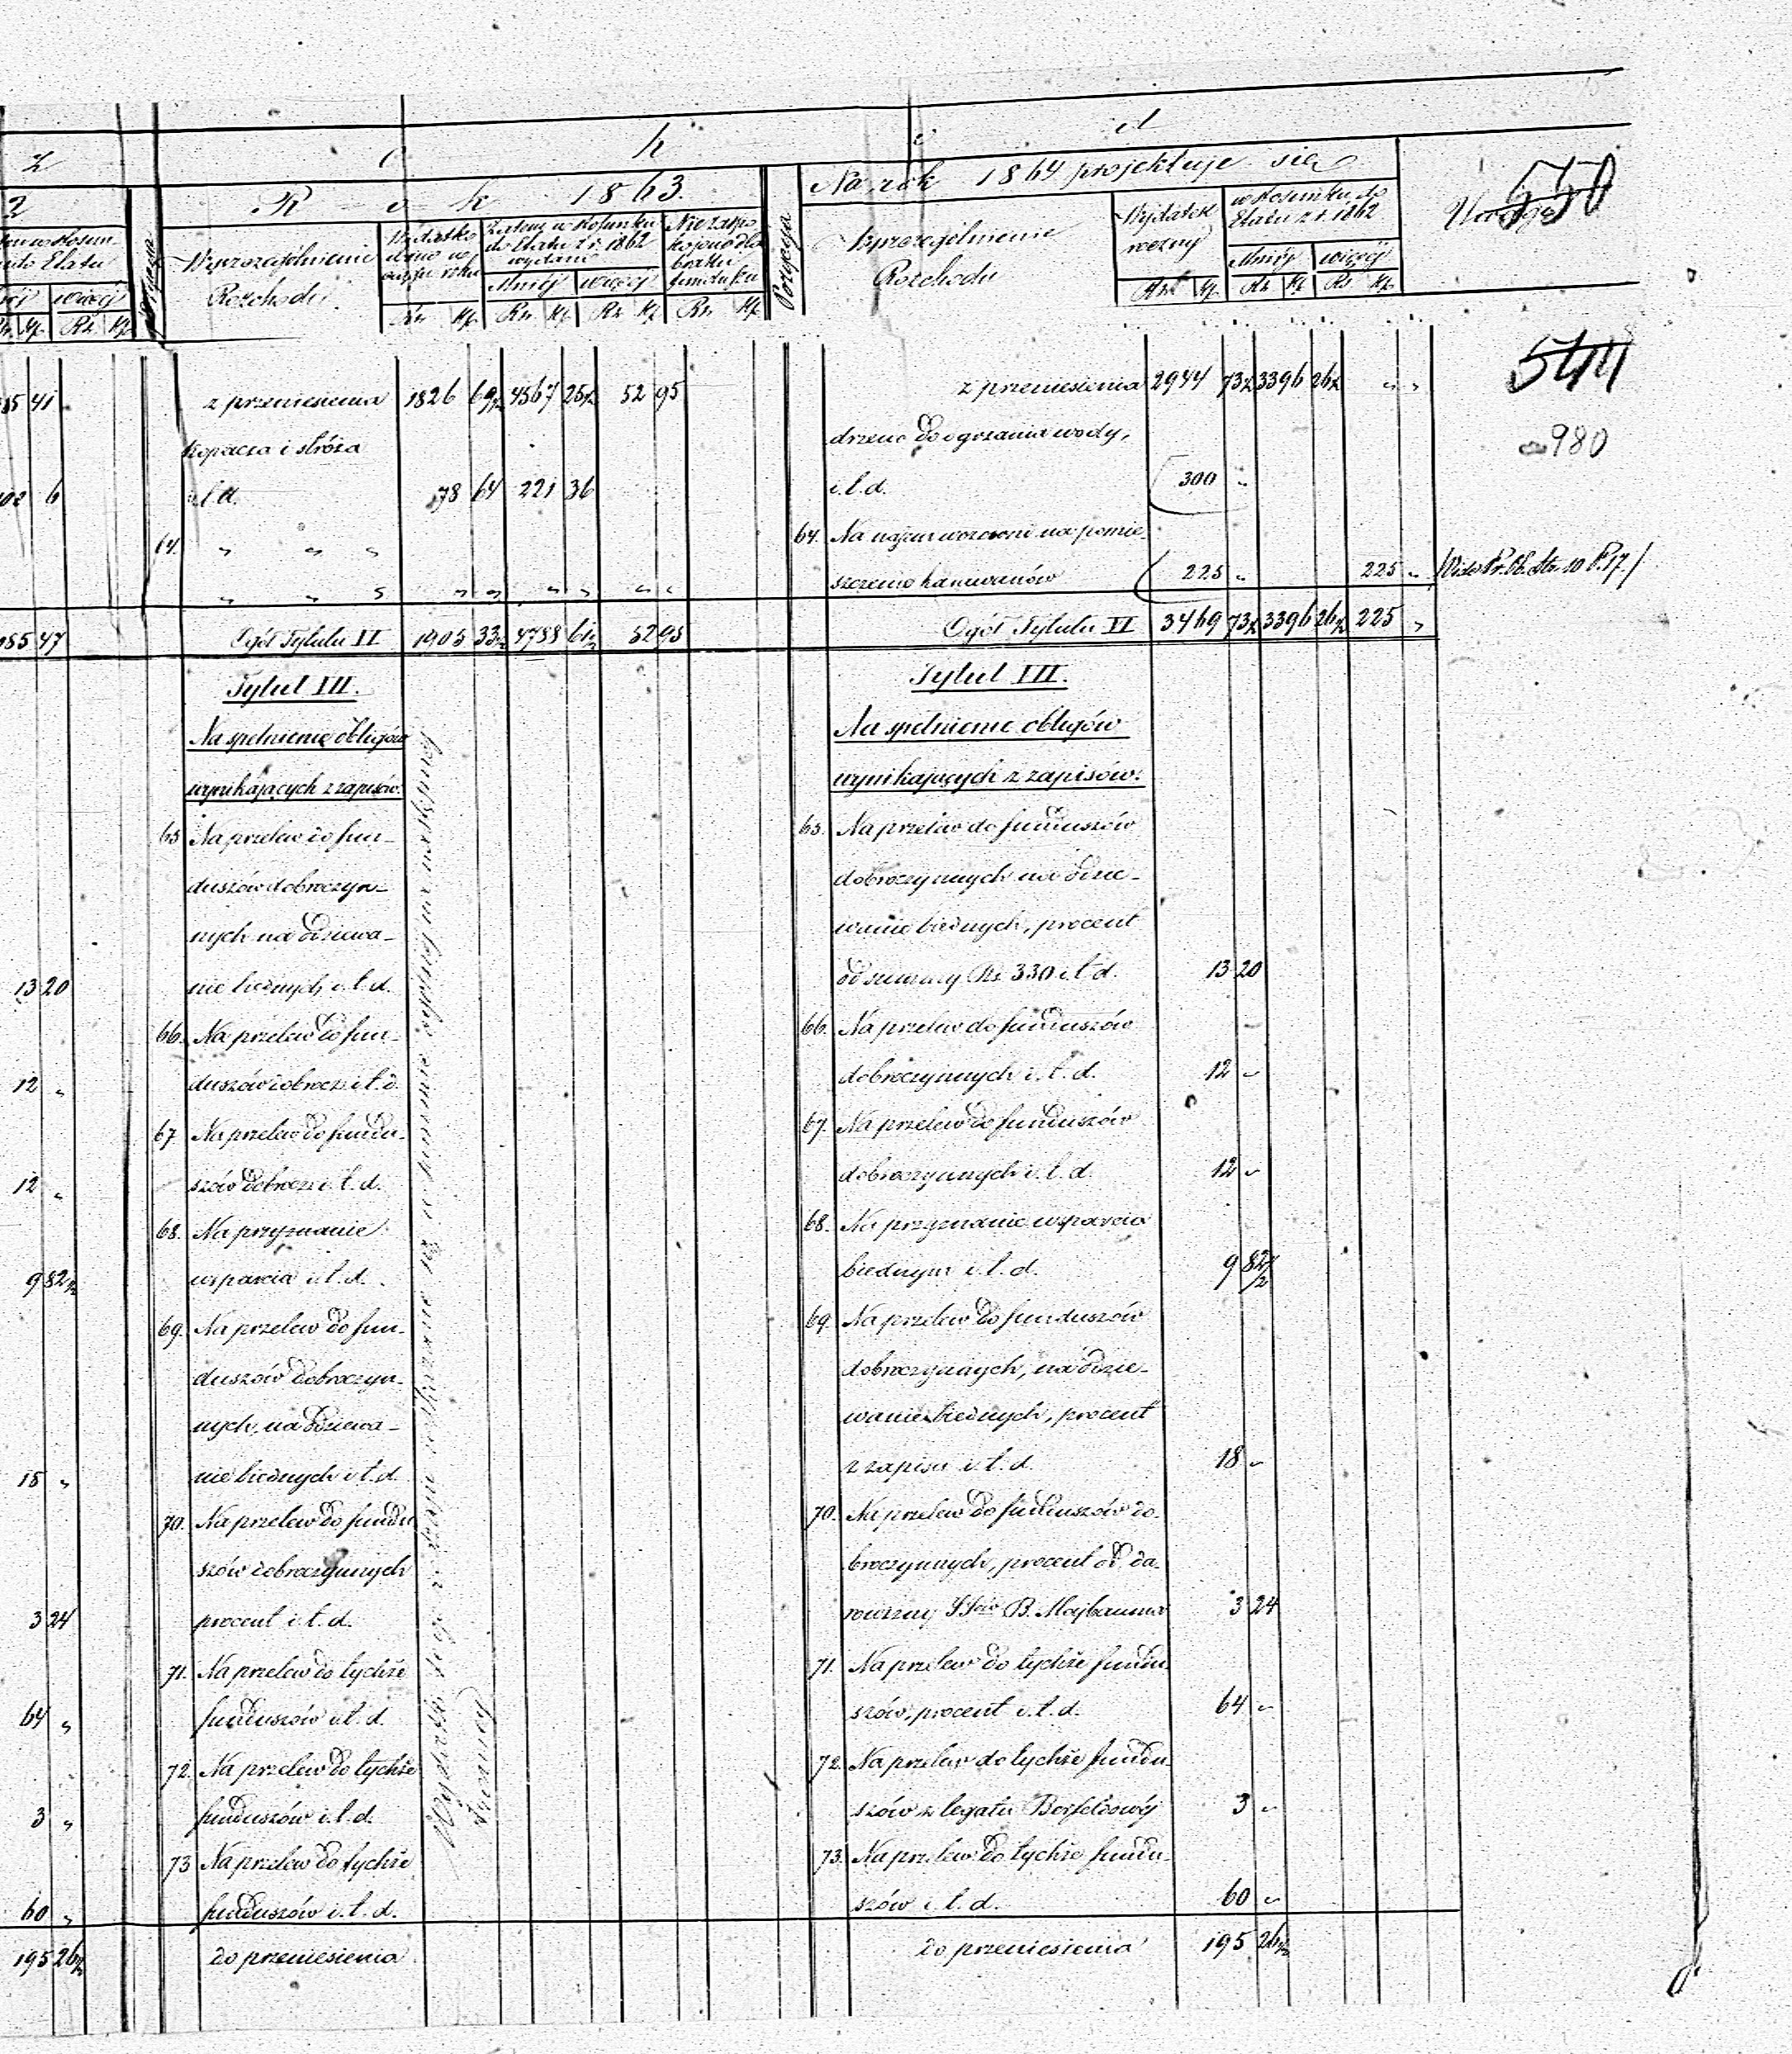 z c h ó d
2 R o k 1863. Na rok 1864 projektuje się Uwagi 550
Pozycja Wyszczególnienie Rozchodu Wydatkowano w ciągu roku Zatem w stosunku do Etatu z r. 1862 wydano Mniéj więcéj Rs. Kp. Rs. Kp. Rs. Kp.
Pozycja Wyszczególnienie Rozchodu Wydatek roczny w stosunku do Etatu z r. 1862 Mniéj więcéj Rs. Kp. Rs. Kp. Rs. Kp.
544
41 z przeniesienia 1826 69½ 4567 25½ 52 95 z przeniesienia 2944 73½ 3396 26½ „ „
980
kopacza i stróża drzewo do ogrzania wody,
6 i.t.d. 78 64 221 36 i.t.d. 300 „
64. „ „ „ 64. Na najem wozowni na pomie-
„ „ „ „ „ „ „ „ „ szczenie karawanów 225 „ 225 „
47 Ogół Tytułu II 1905 33½ 4788 61½ 52 95 Ogół Tytułu II 3469 73½ 3396 26½ 225 „
Tytuł III. Tytuł III.
Na spełnienie obligów Na spełnienie obligów
wynikających z zapisów. wynikających z zapisów.
65 Na przelew do fun- 65. Na przelew do funduszów
duszów dobroczyn- dobroczynnych na odzie-
nych na odziewa- wanie biednych, procent
13 20 nie biednych i.t.d. od summy Rs. 330 i.t.d. 13 20
66. Na przelew do fun- 66. Na przelew do funduszów
12 „ duszów dobrocz. i.t.d. dobroczynnych i.t.d. 12 „
67 Na przelew do fundu- 67. Na przelew do funduszów
12 „ szów dobrocz. i.t.d. dobroczynnych i.t.d. 12 „
68. Na przyznanie 68. Na przyznanie wsparcia
9 82½ wsparcia i.t.d. biednym i.t.d. 9 82½
69. Na przelew do fun- 69. Na przelew do funduszów
duszów dobroczyn- dobroczynnych, na odzie-
nych, na odziewa- wanie biednych, procent
18 „ nie biednych i.t.d. z zapisu i.t.d. 18 „
70. Na przelew do fundu 70. Na przelew do funduszów do-
szów dobroczynnych broczynnych, procent od da-
3 24 procent i.t.d. rowizny B. Majbauma 3 24
71. Na przelew do tychże 71. Na przelew do tychże fundu-
64 „ funduszów i.t.d. szów, procent i.t.d. 64 „
72. Na przelew do tychże 72. Na przelew do tychże fundu-
3 „ funduszów i.t.d. szów z legatu 3 „
73 Na przelew do tychże 73. Na przelew do tychże fundu-
60 „ funduszów i.t.d. szów i.t.d. 60 „
195 26½ do przeniesienia do przeniesienia 195 26½